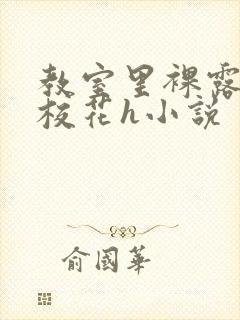 教室里裸露
校花h小説
俞國華